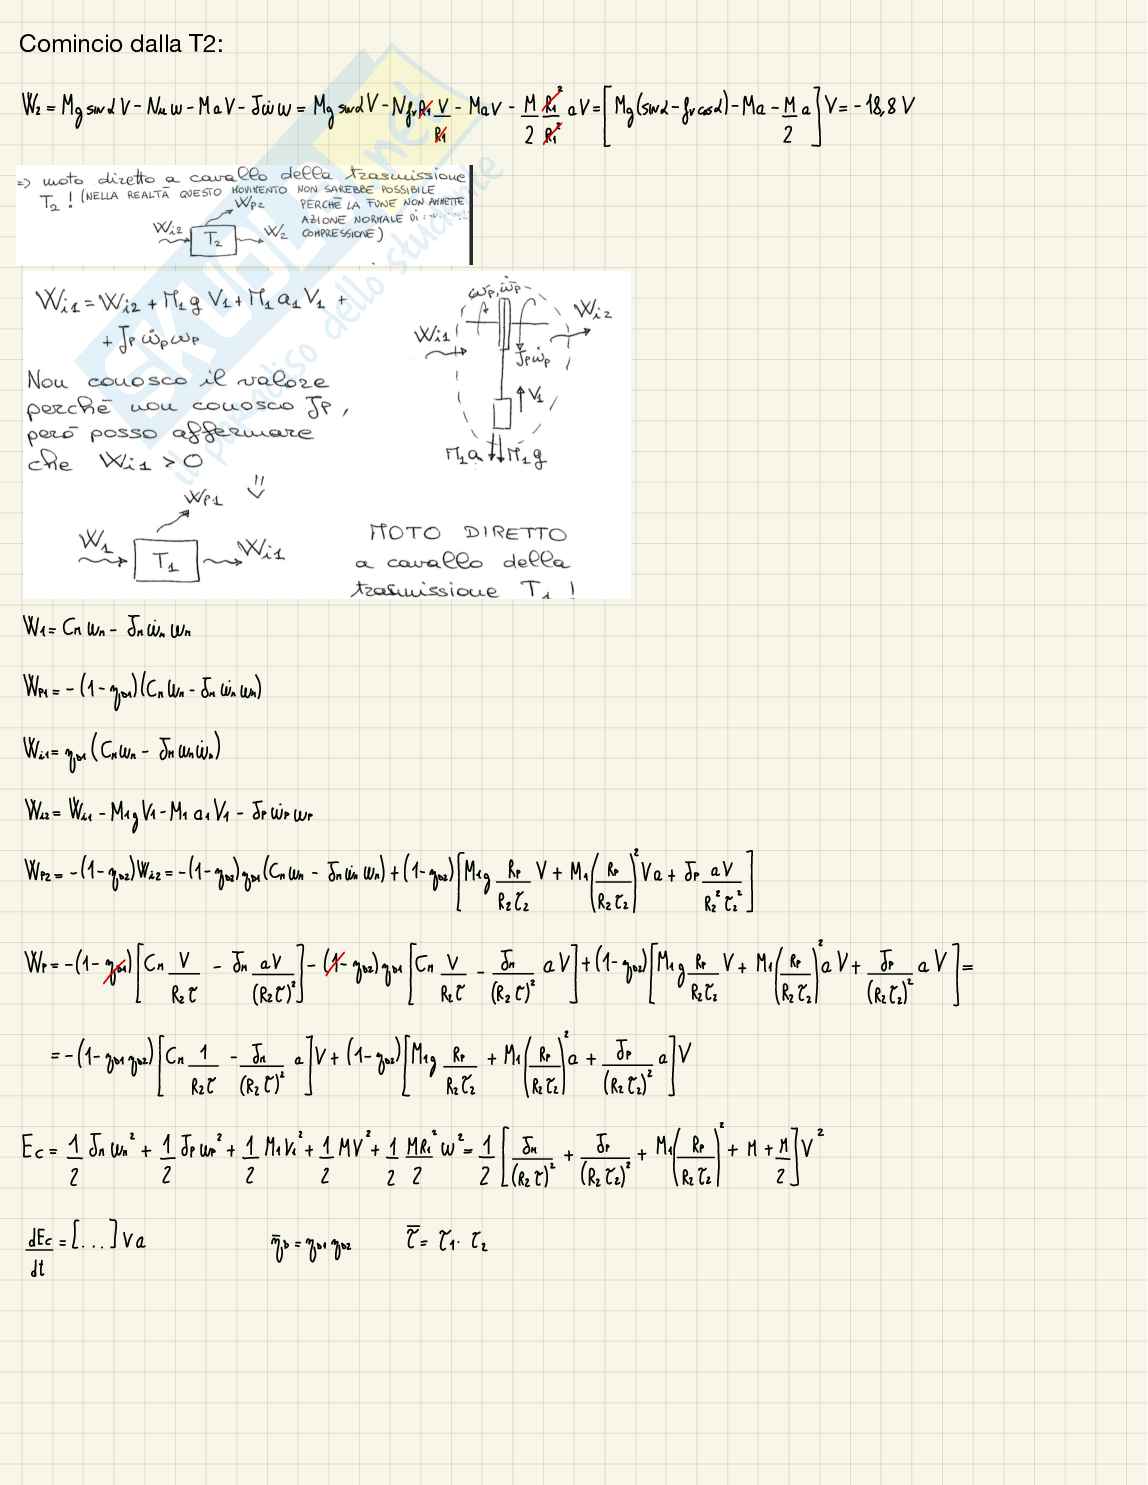 Comincio dalla T2:
W₂ = Mg sinα V - Nuω - MaV - Jω̇ω = Mg sinα V - N fᵥ R₁ V/R₁ - MaV - M/2 R₁²/R₁² aV = [Mg(sinα - fᵥ cosα) - Ma - M/2 a] V = - 18,8 V
=> moto diretto a cavallo della trasmissione
T₂ ! (NELLA REALTÀ QUESTO MOVIMENTO NON SAREBBE POSSIBILE
PERCHÈ LA FUNE NON AMMETTE
AZIONE NORMALE DI
COMPRESSIONE)
Wp₂
Wi₂ T₂ W₂
Wi₁ = Wi₂ + M₁g V₁ + M₁a₁V₁ +
+ Jp ω̇p ωp
Non conosco il valore
perchè non conosco Jp,
però posso affermare
che Wi₁ > 0
ωp, ω̇p
Wi₁ Wi₂
Jp ω̇p
V₁
M₁a M₁g
Wp₁
W₁ T₁ Wi₁
MOTO DIRETTO
a cavallo della
trasmissione T₁ !
W₁ = Cₘωₘ - Jₘω̇ₘωₘ
Wp₁ = -(1-ηD1)(Cₘωₘ - Jₘω̇ₘωₘ)
Wi₁ = ηD1(Cₘωₘ - Jₘωₘω̇ₘ)
Wi₂ = Wi₁ - M₁gV₁ - M₁a₁V₁ - Jpω̇pωp
Wp₂ = -(1-ηD2)Wi₂ = -(1-ηD2)ηD1(Cₘωₘ - Jₘω̇ₘωₘ) + (1-ηD2)[M₁g Rp/(R₂τ₂) V + M₁(Rp/(R₂τ₂))² Va + Jp aV/(R₂²τ₂²)]
Wp = -(1-ηD1)[Cₘ V/(R₂τ) - Jₘ aV/(R₂τ)²] - (1-ηD2)ηD1[Cₘ V/(R₂τ) - Jₘ/(R₂τ)² aV] + (1-ηD2)[M₁g Rp/(R₂τ₂) V + M₁(Rp/(R₂τ₂))² aV + Jp/(R₂τ₂)² aV] =
= -(1-ηD1ηD2)[Cₘ 1/(R₂τ) - Jₘ/(R₂τ)² a]V + (1-ηD2)[M₁g Rp/(R₂τ₂) + M₁(Rp/(R₂τ₂))² a + Jp/(R₂τ₂)² a]V
Ec = 1/2 Jₘωₘ² + 1/2 Jpωp² + 1/2 M₁V₁² + 1/2 MV² + 1/2 MR₁²/2 ω² = 1/2 [Jₘ/(R₂τ)² + Jp/(R₂τ₂)² + M₁(Rp/(R₂τ₂))² + M + M/2]V²
dEc/dt = [...]Va η̄D = ηD1 ηD2 τ̄ = τ₁ · τ₂